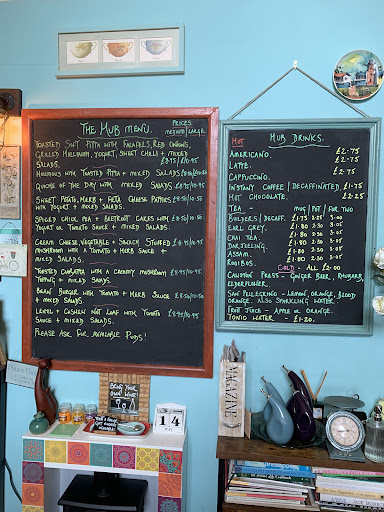 The Hub Menu.
PRICES.
MEDIUM/LARGE.
Toasted Soft Pitta with Falafels, Red Onions,
Grilled Halloumi, Yogurt, Sweet Chilli + mixed
Salads.
£8.95/10.95
Houmous with Toasted Pitta + mixed Salads
Quiche of the day with mixed Salads
Sweet Potato, Herb + Feta Cheese Patties
with Yogurt + mixed Salads.
Spiced Chick Pea + Beetroot Cakes with
Yogurt or Tomato Sauce + mixed Salads.
Cream Cheese, Vegetable + Spinach Stuffed
Mushroom with a Tomato + Herb Sauce +
mixed Salads.
Toasted Ciabatta with a Creamy Mushroom
Topping + mixed Salads.
Bean Burger with Tomato + Herb Sauce
+ mixed Salads.
Lentil + Cashew Nut Loaf with Tomato
Sauce + mixed Salads.
Please Ask For Available Puds!
Hub Drinks.
HOT
Americano. £2-75
Latte. £2-75
Cappuccino. £2-75
Instant Coffee/Decaffeinated £1-75
Hot Chocolate. £2-25
Tea - mug/pot/for two
Builders/Decaff.
Earl Grey.
Chai Tea.
Darjeeling.
Assam.
Rooibos.
COLD - ALL £2.00
Cawston Press - Ginger Beer, Rhubarb,
Elderflower.
San Pellegrino - Lemon, Orange, Blood
Orange. Also Sparkling Water.
Fruit Juice - Apple or Orange.
Tonic Water - £1-20.
Bring Your
Own Wine!
14
MAGAZINE